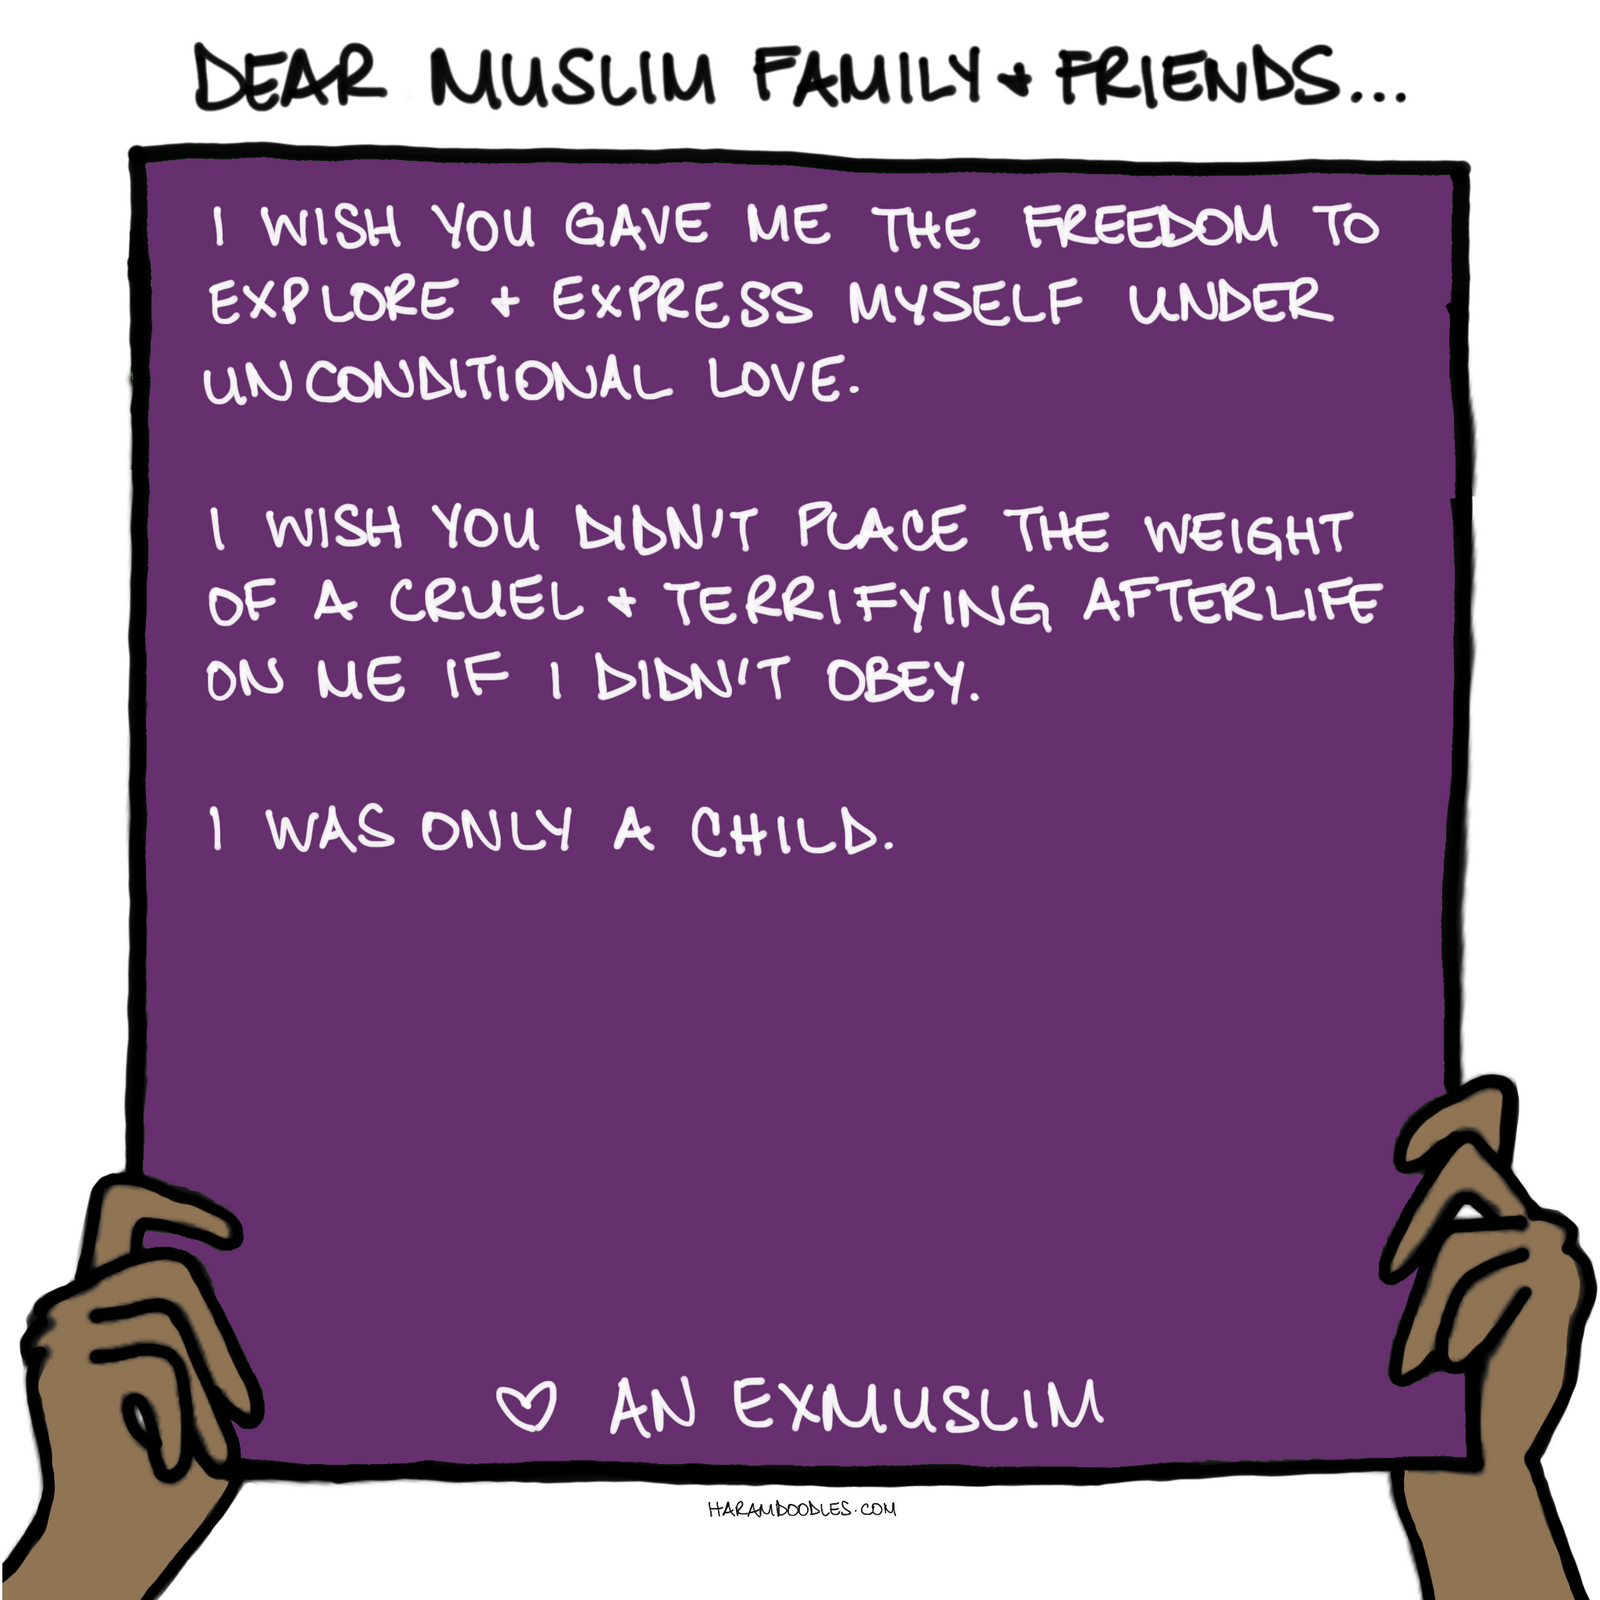 DEAR MUSLIM FAMILY + FRIENDS...
I WISH YOU GAVE ME THE FREEDOM TO
EXPLORE + EXPRESS MYSELF UNDER
UNCONDITIONAL LOVE.
I WISH YOU DIDN'T PLACE THE WEIGHT
OF A CRUEL + TERRIFYING AFTERLIFE
ON ME IF I DIDN'T OBEY.
I WAS ONLY A CHILD.
♡ AN EXMUSLIM
HARAMDOODLES.COM